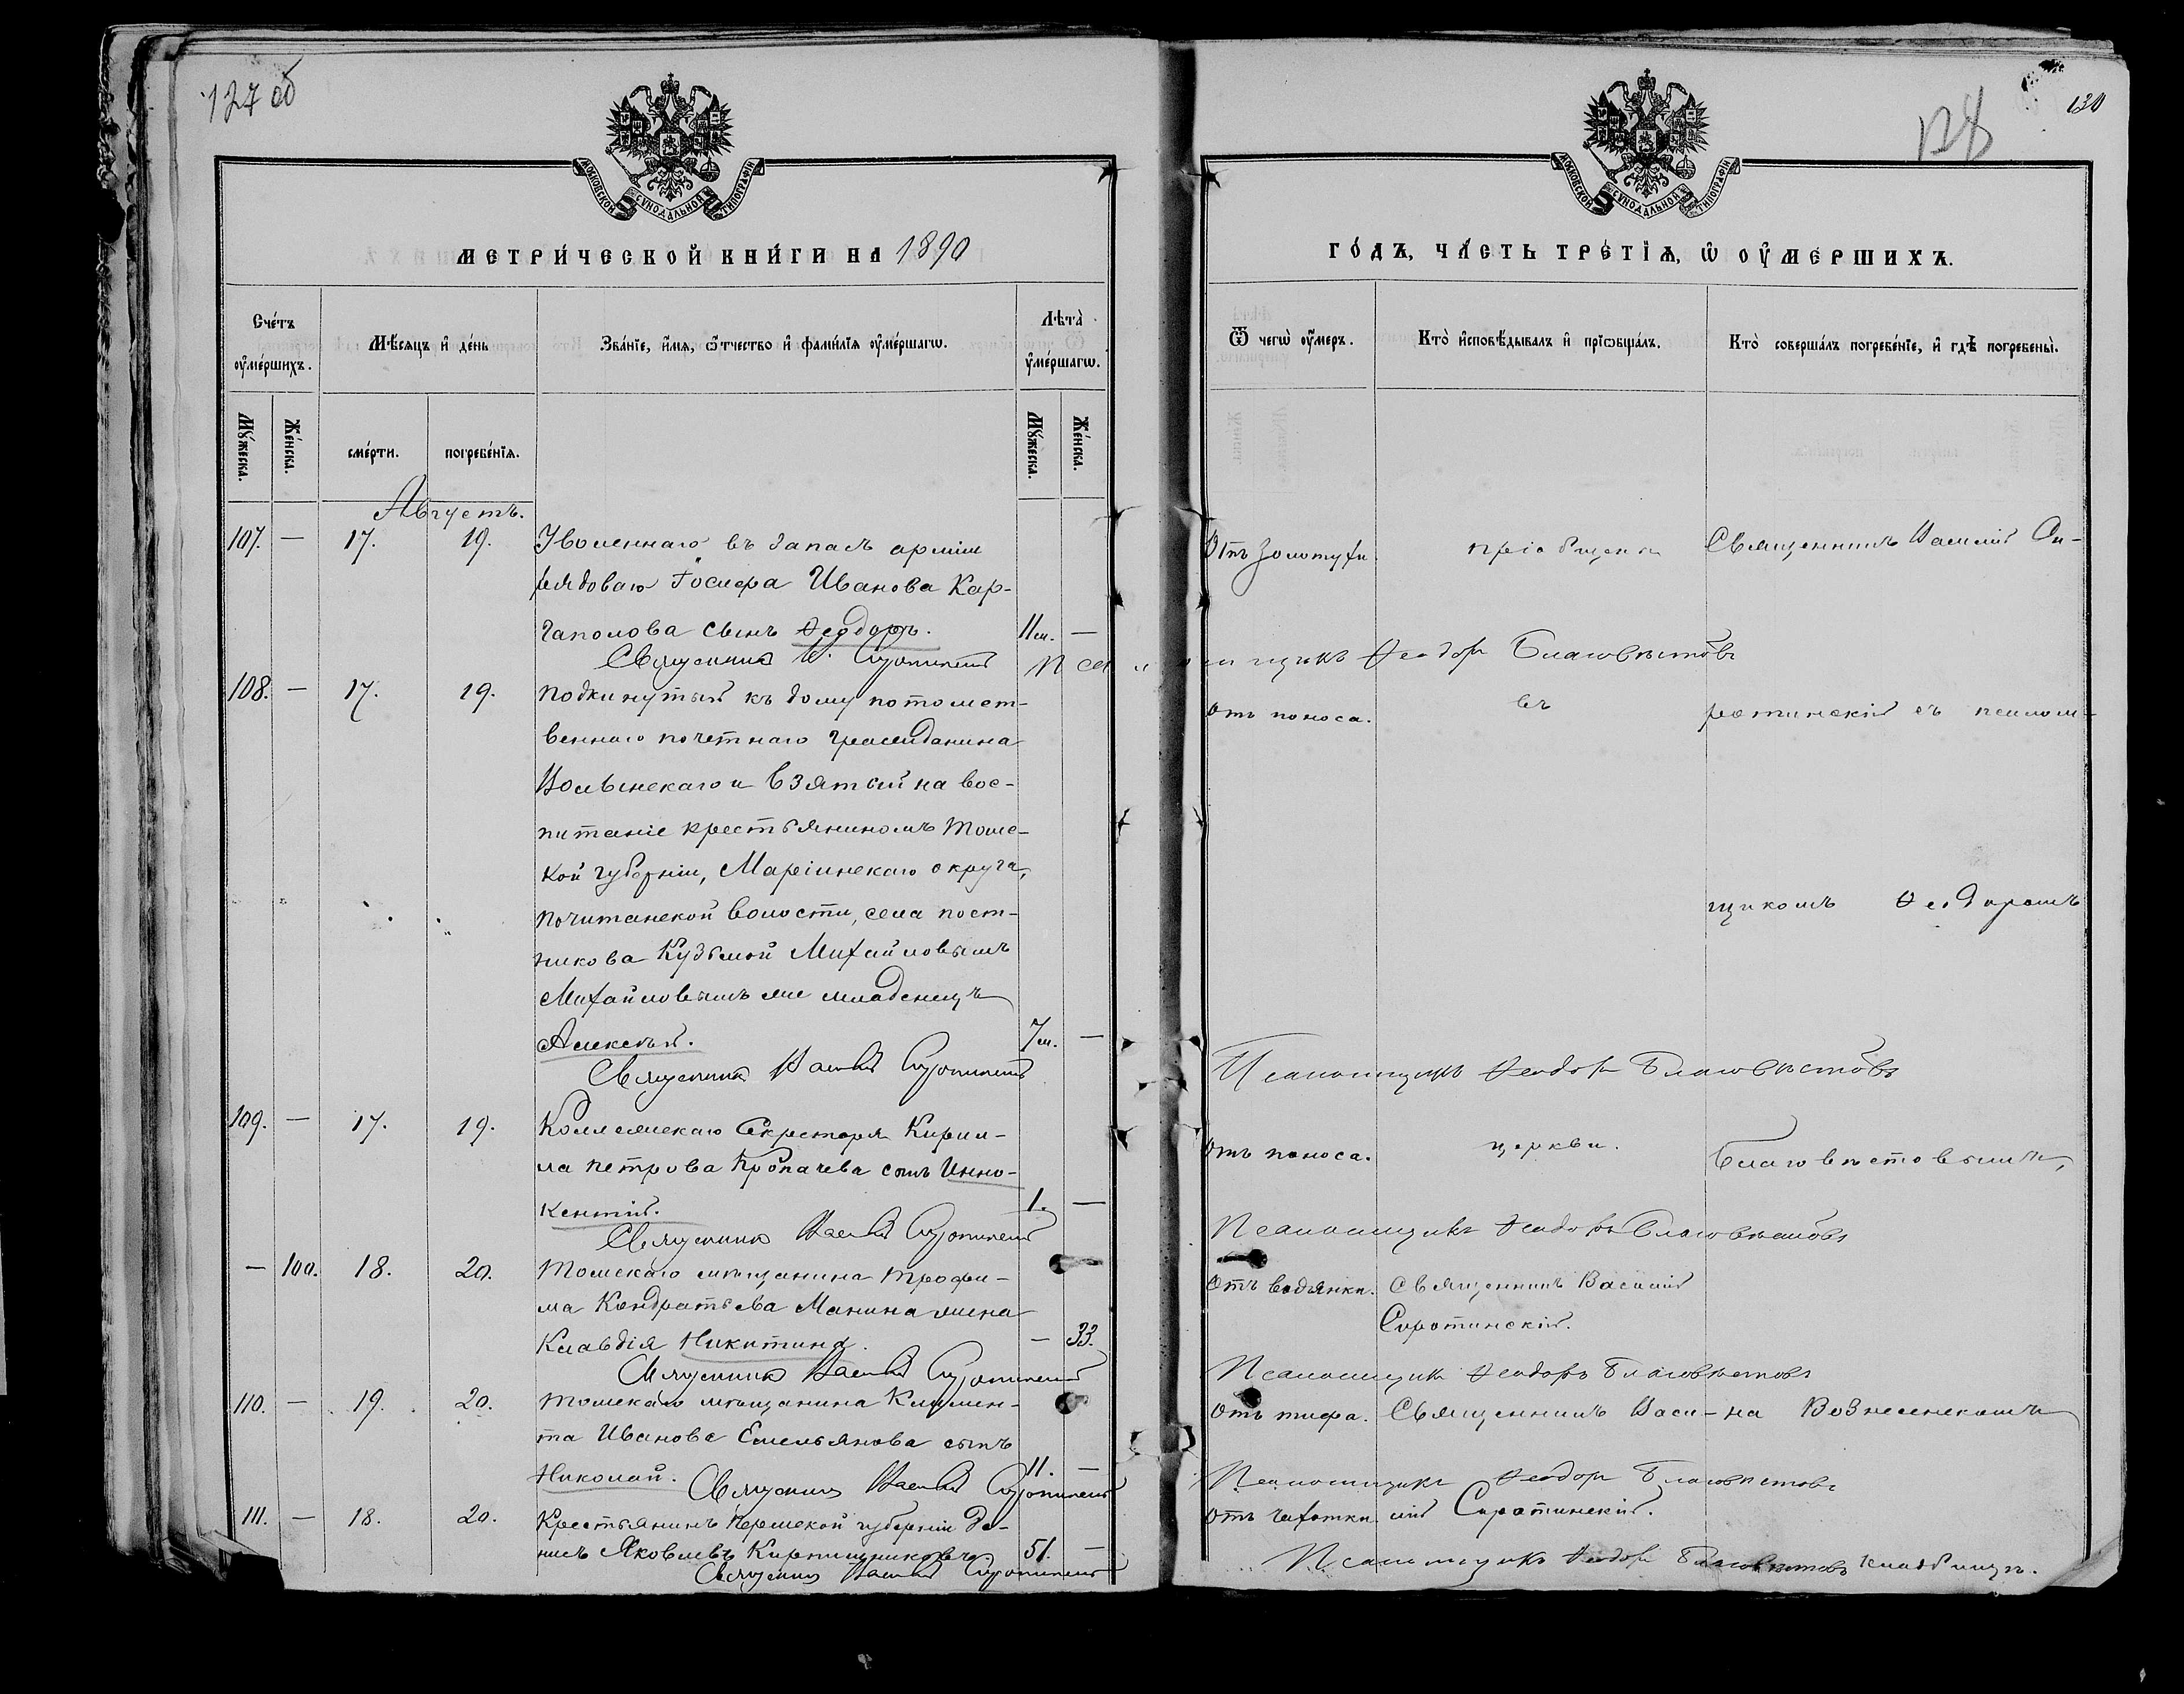 127 об
МОСКОВСКОЙ СѴНОДАЛЬНОЙ ТИПОГРАФІИ
МЕТРИ́ЧЕСКОЙ КНИ́ГИ НА 1890
Сче́тъ ᲂу҆ме́ршихъ.
Мѣ́сяцъ и҆ де́нь
Зва́нїе, и҆́мя, ѻ҆́тчество и҆ фами́лїя ᲂу҆ме́ршагѡ.
Лѣта̀ ᲂу҆ме́ршагѡ.
Мꙋ́жеска.
Же́нска.
сме́рти.
погребе́нїѧ.
Мꙋ́жеска.
Же́нска.
Августъ.
107. — 17. 19. Уволеннаго въ запасъ арміи
рядоваго Іосифа Иванова Кар-
гаполова сынъ Ѳеодоръ. 11 м. —
Священникъ В. Сиротинскій
108. — 17. 19. Подкинутый къ дому потомст-
веннаго почетнаго гражданина
Волынскаго и взятый на вос-
питаніе крестьяниномъ Томс-
кой губерніи, Маріинскаго округа,
Почитанской волости, села Пост-
никова Кузьмой Михайловымъ
Михайловымъ же младенецъ
Алексѣй. 7 м. —
Священникъ Василій Сиротинскій
109. — 17. 19. Коллежскаго Секретаря Кирил-
ла Петрова Кропачева сынъ Инно-
кентій. 1. —
Священникъ Василій Сиротинскій
— 100. 18. 20. Томскаго мѣщанина Трофи-
ма Кондратьева Манина жена
Клавдія Никитина. — 33.
Священникъ Василій Сиротинскій
110. — 19. 20. Томскаго мѣщанина Климен-
та Иванова Емельянова сынъ
Николай. 11. —
Священникъ Василій Сиротинскій
111. — 18. 20. Крестьянинъ Пермской губерніи Де-
нисъ Яковлевъ Кирпищиковъ. 51. —
Священникъ Василій Сиротинскій
128
130
МОСКОВСКОЙ СѴНОДАЛЬНОЙ ТИПОГРАФІИ
ГО́ДЪ, ЧА́СТЬ ТРЕ́ТІѦ, Ѡ ОУ҆МЕ́РШИХЪ.
Ѿ чегѡ̀ ᲂу҆́меръ.
Кто̀ и҆сповѣ́дывалъ и҆ прїѡбща́лъ.
Кто̀ соверша́лъ погребе́нїе, и҆ гдѣ̀ погребены̀.
Отъ золотухи
пріобщенъ
Священникъ Василій Си-
Псаломщикъ Ѳеодоръ Благовѣстовъ
Отъ поноса.
въ
ротинскій съ псалом-
щикомъ Ѳеодоромъ
Псаломщикъ Ѳеодоръ Благовѣстовъ
Отъ поноса.
церкви.
Благовѣстовымъ,
Псаломщикъ Ѳеодоръ Благовѣстовъ
Отъ водянки.
Священникъ Василій
Сиротинскій.
Псаломщикъ Ѳеодоръ Благовѣстовъ
Отъ тифа.
Священникъ Васи-
на Вознесенскомъ
Псаломщикъ Ѳеодоръ Благовѣстовъ
Отъ чахотки
лій Сиротинскій.
Псаломщикъ Ѳеодоръ Благовѣстовъ
кладбищѣ.